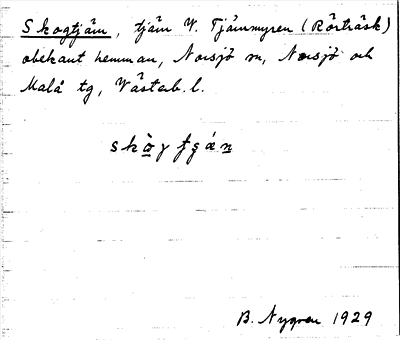 Skogtjärn, tjärn V. Tjärnmyren (Rörträsk)
obekant hemman, Norsjö sn, Norsjö och
Malå tg, Västerb. l.
B. Nygren 1929